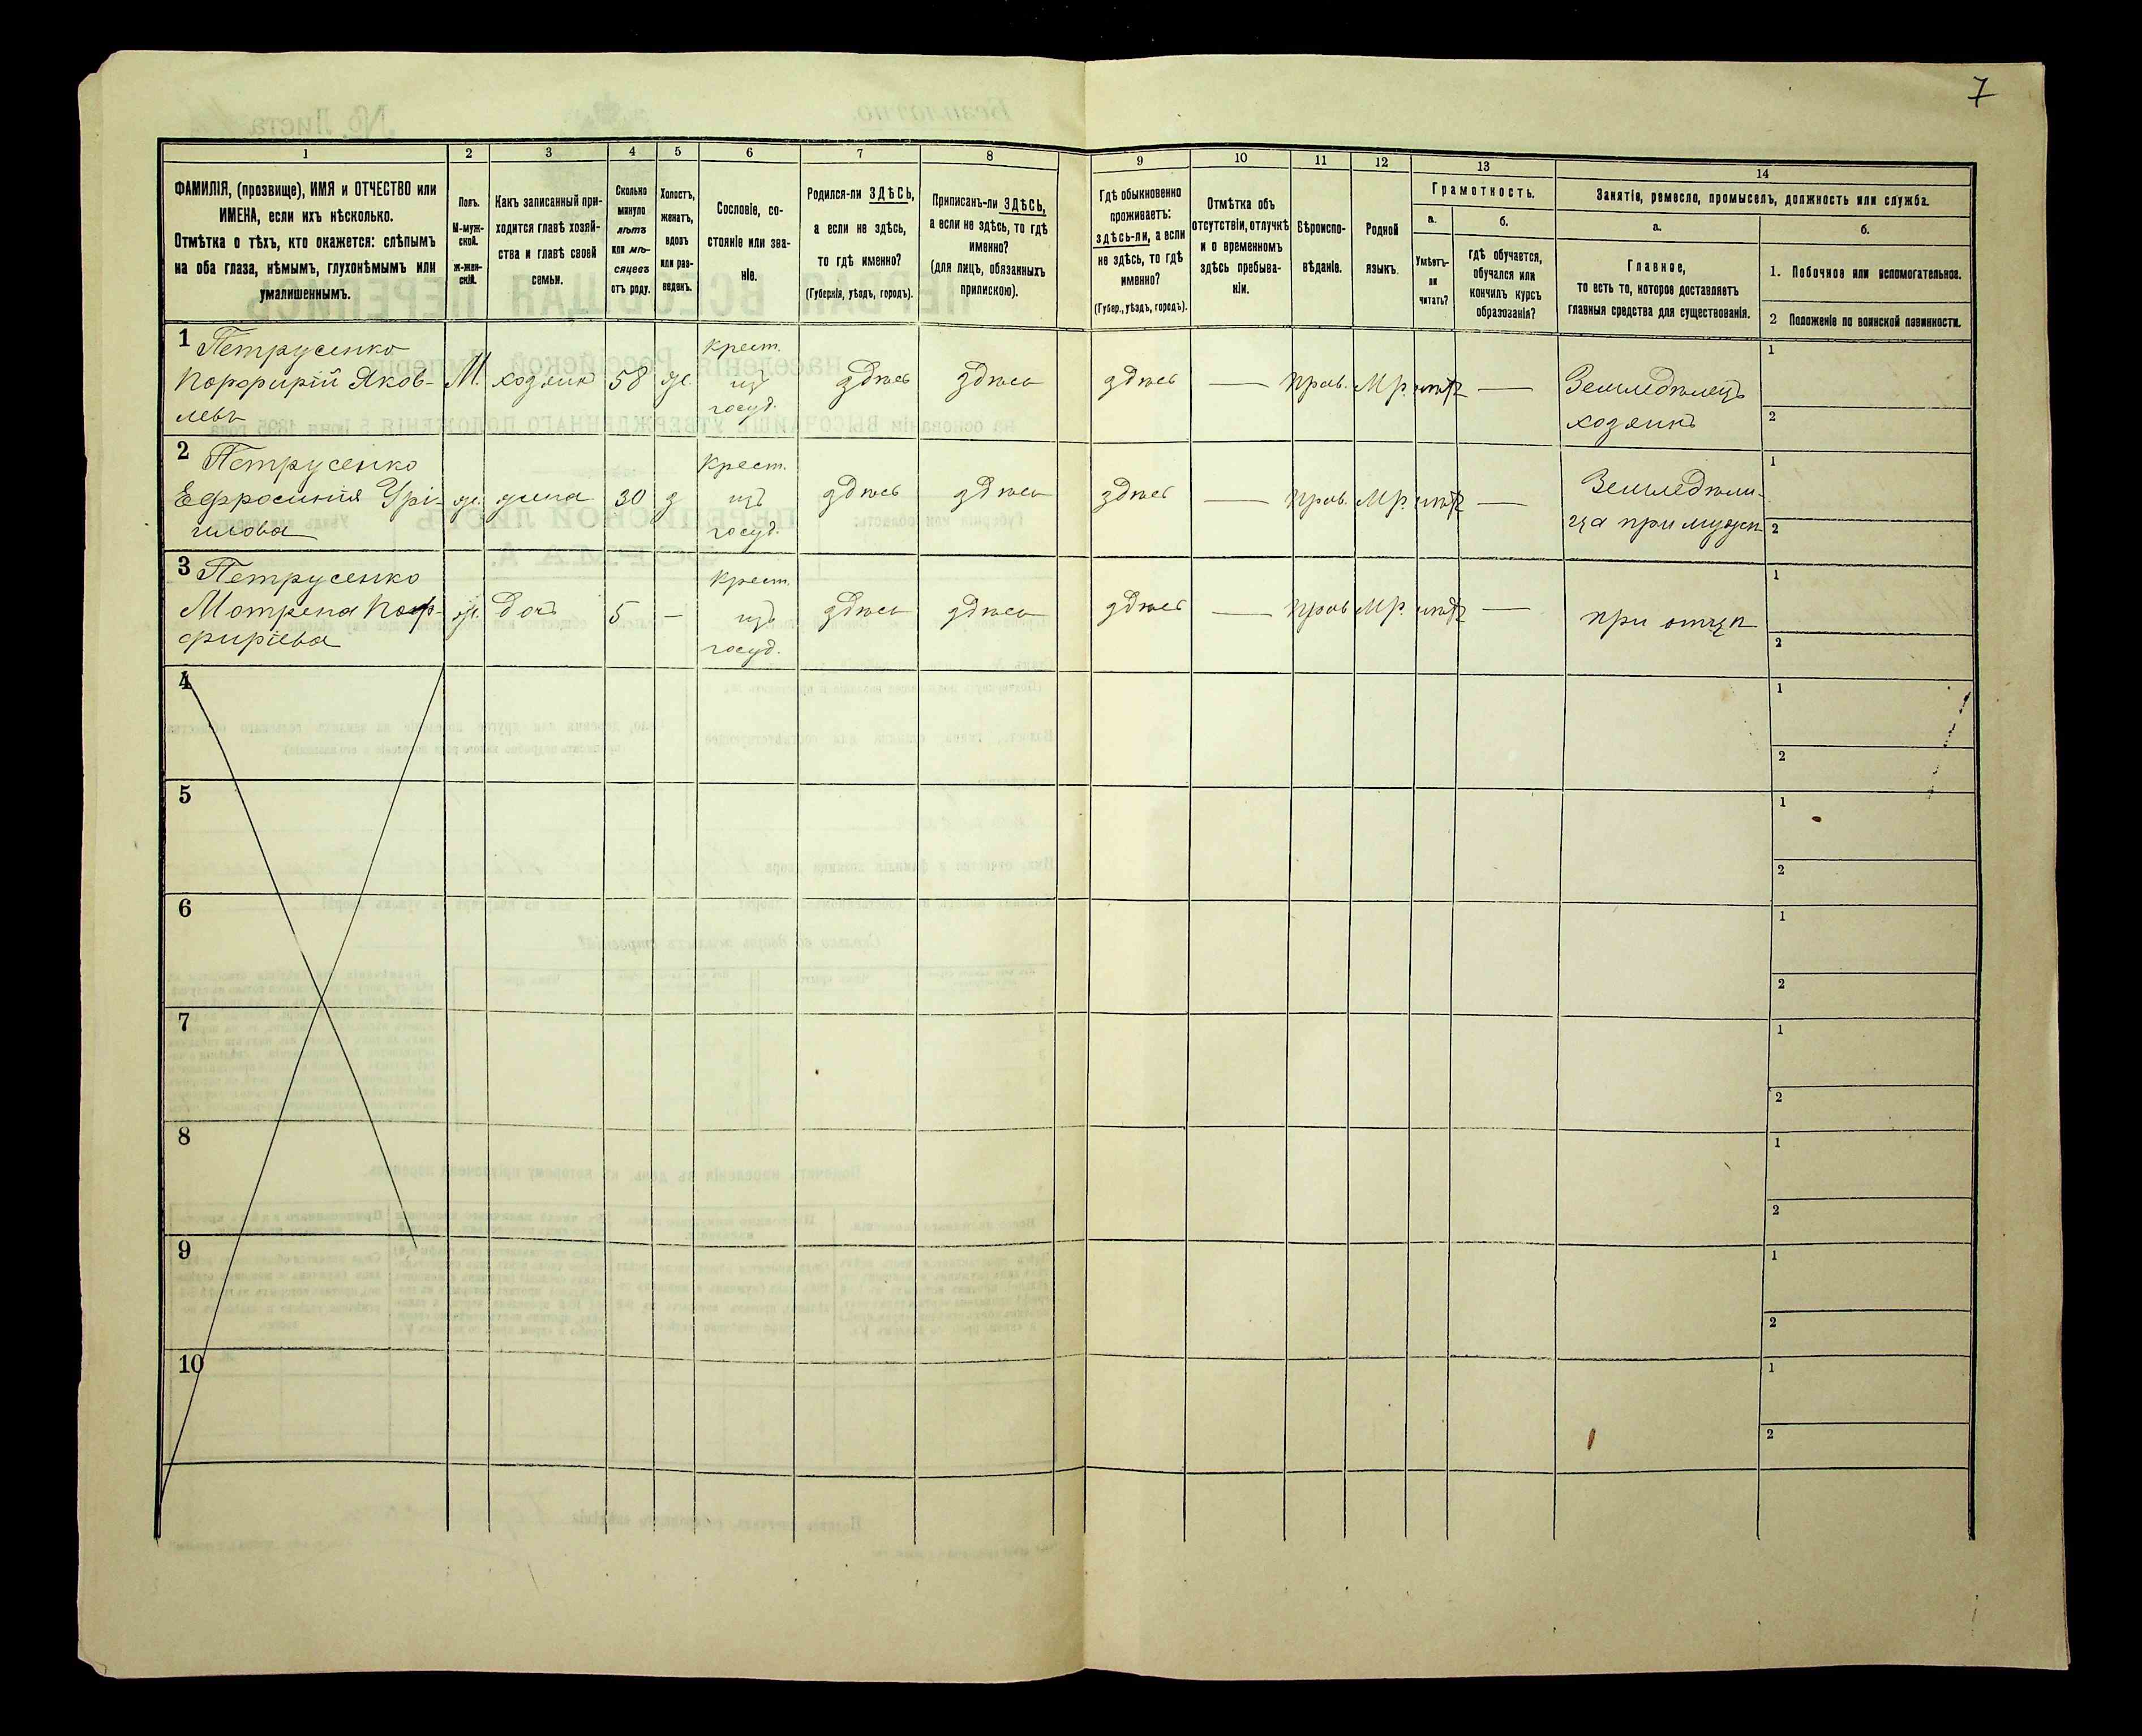 7
1
2
3
4
5
6
7
8
9
10
11
12
13
14
ФАМИЛІЯ, (прозвище), ИМЯ и ОТЧЕСТВО или
ИМЕНА, если ихъ нѣсколько.
Отмѣтка о тѣхъ, кто окажется: слѣпымъ
на оба глаза, нѣмымъ, глухонѣмымъ или
умалишеннымъ.
Полъ.
М-муж-
ской.
ж-жен-
скій.
Какъ записанный при-
ходится главѣ хозяй-
ства и главѣ своей
семьи.
Сколько
минуло
лѣтъ
или мѣ-
сяцевъ
отъ роду.
Холостъ,
женатъ,
вдовъ
или раз-
веденъ.
Сословіе, со-
стояніе или зва-
ніе.
Родился-ли ЗДѢСЬ,
а если не здѣсь,
то гдѣ именно?
(Губернія, уѣздъ, городъ).
Приписанъ-ли ЗДѢСЬ,
а если не здѣсь, то гдѣ
именно?
(для лицъ, обязанныхъ
припискою).
Гдѣ обыкновенно
проживаетъ:
здѣсь-ли, а если
не здѣсь, то гдѣ
именно?
(Губер., уѣздъ, городъ).
Отмѣтка объ
отсутствіи, отлучкѣ
и о временномъ
здѣсь пребыва-
ніи.
Вѣроиспо-
вѣданіе.
Родной
языкъ.
Грамотность.
а.
Умѣетъ-
ли
читать?
б.
гдѣ обучается,
обучался или
кончилъ курсъ
образованія?
Занятіе, ремесло, промыселъ, должность или служба.
а.
Главное,
то есть то, которое доставляетъ
главныя средства для существованія.
б.
1. Побочное или вспомогательное.
2 Положеніе по воинской повинности.
1 Петрусенко
Порфирій Яков-
левъ
М.
хозяинъ
58
ж.
Крест.
изъ
госуд.
здѣсь
здѣсь
здѣсь
—
прав.
Мр.
нѣтъ
—
Земледѣлецъ
хозяинъ
1
2
2 Петрусенко
Ефросинія
ж.
жена
30
з
Крест.
изъ
госуд.
здѣсь
здѣсь
здѣсь
—
прав.
Мр.
нѣтъ
—
Земледѣли-
ца при мужѣ
1
2
3 Петрусенко
Мотрена Пор-
фиріева
ж.
дочь
5
—
Крест.
изъ
госуд.
здѣсь
здѣсь
здѣсь
—
прав
Мр.
нѣтъ
—
при отцѣ
1
2
4
1
2
5
1
2
6
1
2
7
1
2
8
1
2
9
1
2
10
1
2